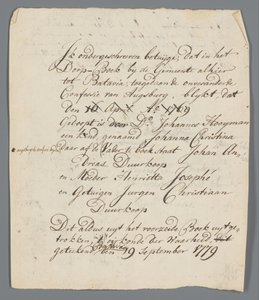 Ik ondergeschreven betuijge, dat in het
Doop-Boek by de Gemeente alhier
tot Batavia toegedaan onveranderde
Confessie van Augsburg, blykt, dat
den 10 April Ao 1769
Gedoopt is door Ds. Johannes Hooyman
een kind genaamd Johanna Christina
Daar af de Vader is Johan An-
dreas Duurkoop
en Moeder Henrietta Josepho
en Getuigen Jurgen Christiaan
Duurkoop
Dit aldus uyt het voorzeide Boek uytge-
trokken, ten oirkonde der Waarheid
getekent, den 19 September 1779